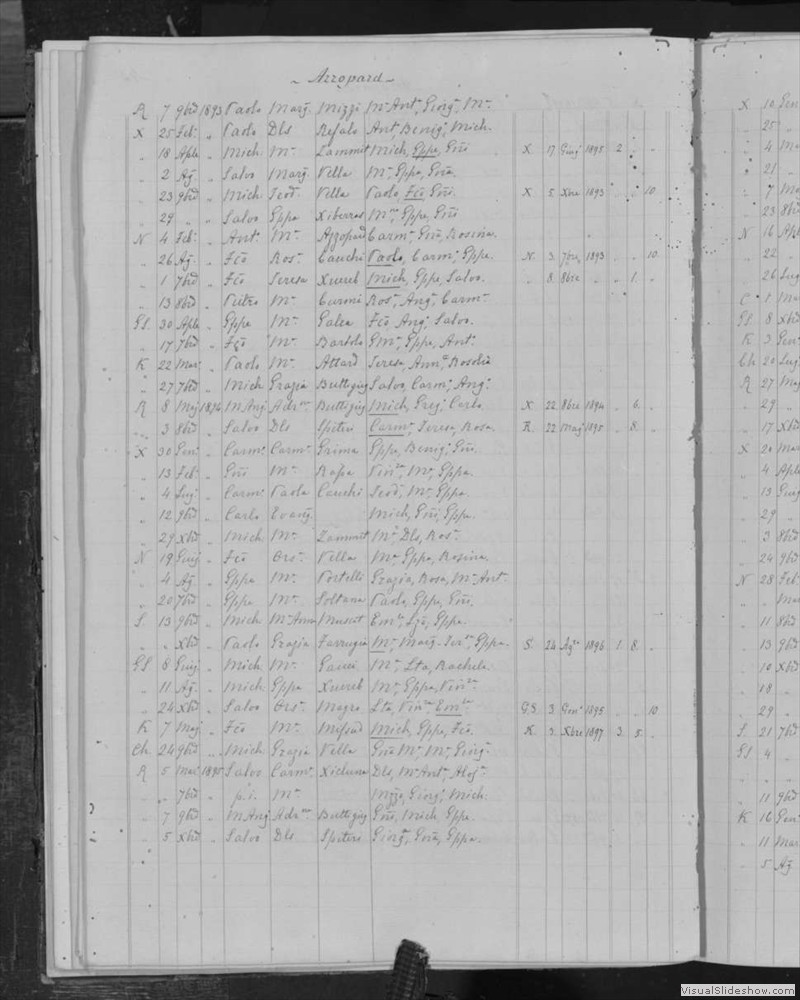 Azzopard
R 7 9bri 1893 Paolo Marg. Mizzi Mª Antª, Giorgª, Mª
X 25 Feb. " Paolo Dls Refalo Ant, Benigª, Mich.
" 18 Aple " Mich. Mª Zammit Mich, Gppe, Gio. X 17 Giug 1895 2 " "
" 2 Ag. " Salvo Marg. Vella Mª, Gppa, Gioª.
" 23 9bri " Mich Teod. Vella Paolo, Fco, Gio. X 5 Xbre 1893 " " 10
" 29 " " Salvo Gppa Xiberras Mª, Gppe, Gio
N 4 Feb. " Ant. Mª Azzopard Carmª, Gio, Rosina.
" 26 Ag. " Fco Rosª Cauchi Paolo, Carmª, Gppe. N. 3 7bre 1893 " " 10
" 1 7bri " Fco Teresa Xuereb Mich, Gppe, Salvo. " 8 8bre " " 1. "
" 13 8bri " Pietro Mª Curoni Rosª, Angª, Carmª
GL 30 Aple " Gppe Mª Galea Fco, Ang, Salvo.
" 17 7bri " Fco Mª Bartolo Gppe, Ant.
K 22 Mar. " Paolo Mª Attard Teresa, Annª, Rosolia
" 27 7bri " Mich Grazia Buttigieg Salvo, Carmª, Ang.
R 8 Mag. M Ang. Adrna Buttigieg Mich, Greg. Carlo X 22 8bre 1894 " 6 "
" 3 8bri " Salvo Dls Spiteri Carmª, Teresa, Rosa. R. 22 Mag 1895 " 8. "
X 30 Gen. " Carmº Carmª Grima Gppe, Benig. Gio.
" 13 Feb. " Gio Mª Rapa Vinza, Mª, Gppa.
" 4 Lug. " Carmº Paola Cauchi Teod., Mª, Gppa.
" 12 9bri " Carlo Evang. Mich, Gio, Gppa.
" 29 Xbri " Mich Mª Zammit Mª Dls, Rosª.
N 19 Giug " Fco Orsª Vella Mª Gppa, Rosina.
" 4 Ag. " Gppe Mª Portelli Grazia, Rosa, Mª Antª.
" 20 7bri " Gppe Mª Soltana Paolo, Gppe, Gio.
S. 13 9bri " Mich Mª Anna Muscat Gppa.
" " Xbri " Paolo Grazia Farrugia Mª Marg. Gppa. S. 24 Agto 1896 1 8. "
GL 8 Giug. " Mich Mª Mª, Lta, Rachela.
" 11 Ag. " Mich Gppa Xuereb Mª, Gppa, Vinza
" 24 Xbri " Salvo Orsª Magro Lta, Vinza G.S. 3 Genº 1895 " " 10
K 7 Mag " Fco Mª Mifsud Mich, Gppe, Fco. K 3 Xbre 1897 3 5. "
Ch. 24 9bri " Mich Grazia Vella Gio Mª, Mª, Giorg.
R 5 Mar. 1895 Salvo Carmª Xicluna Dls, Mª Antª,
" " 7bri " p.i. Mª Giorgª, Mich.
" 7 9bri " M Ang. Adrna Buttigieg Gio, Mich, Gppe.
" 5 Xbri " Salvo Dls Spiteri Giorgª, Gioª, Gppa.
X 10 Gen
" 25 "
" 4 Ma
" 21 "
" 7 Ma
" 23 8bri
N 16 Apl
" 22 "
" 26 Lug
C 1 Ma
GL 8 Xbri
K 3 Gen
Ch 20 Lug
R 27 Mag
" 29 "
" 17 Xbri
X 20 Mar
" 4 Aple
" 13 Giug
" 29 "
" 3 8bri
" 24 9bri
N 28 Feb.
" " Mar
" 11 8bri
" 13 9bri
" 10 Xbri
" 18 "
" 29 "
S 21 7bri
GL 4 "
" 11 9bri
K 16 Gen
" 11 Mar
" 5 Ag
VisualSlideshow.com